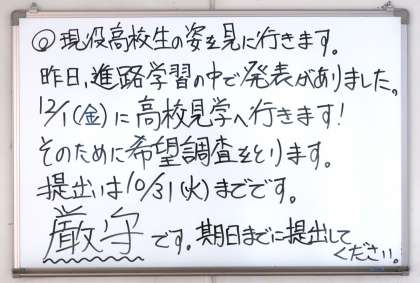 ◎現役高校生の姿を見に行きます。
昨日、進路学習の中で発表がありました。
12/1(金)に高校見学へ行きます!
そのために希望調査をとります。
提出は10/31(火)までです。
厳守です。期日までに提出して
ください。